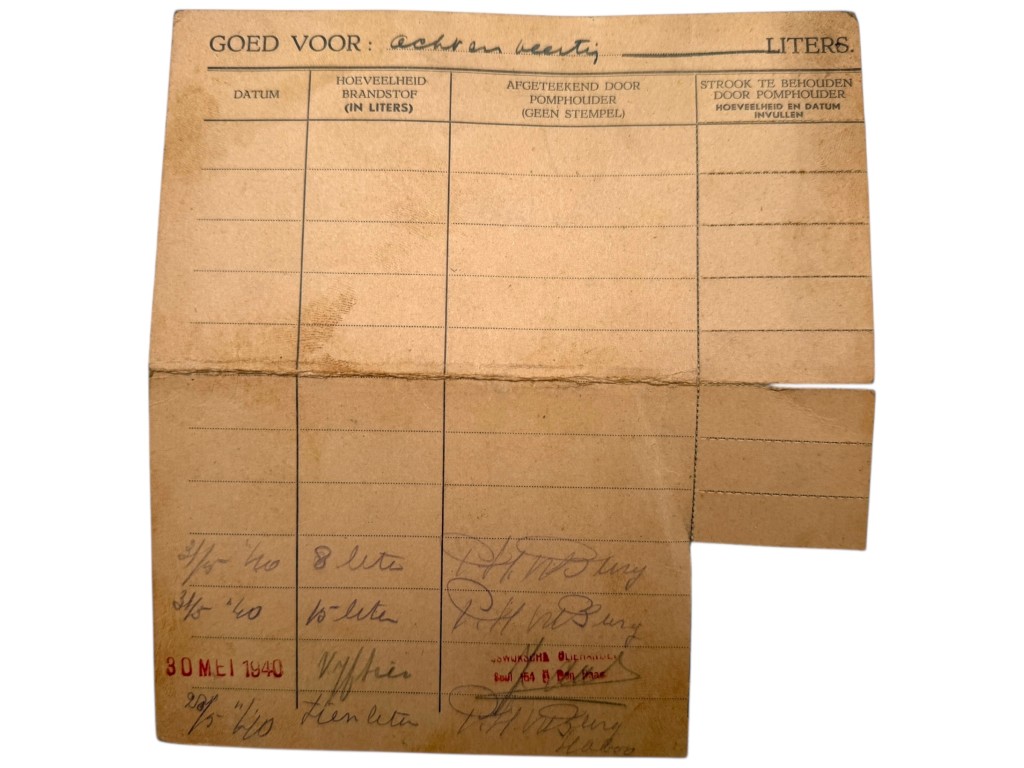 GOED VOOR: acht en veertig LITERS.
DATUM
HOEVEELHEID BRANDSTOF (IN LITERS)
AFGETEEKEND DOOR POMPHOUDER (GEEN STEMPEL)
STROOK TE BEHOUDEN DOOR POMPHOUDER HOEVEELHEID EN DATUM INVULLEN
31/5 '40 8 liter P.H.
31/5 '40 15 liter P.H.
30 MEI 1940 Vyftien
/5 '40 Tien liter P.H.